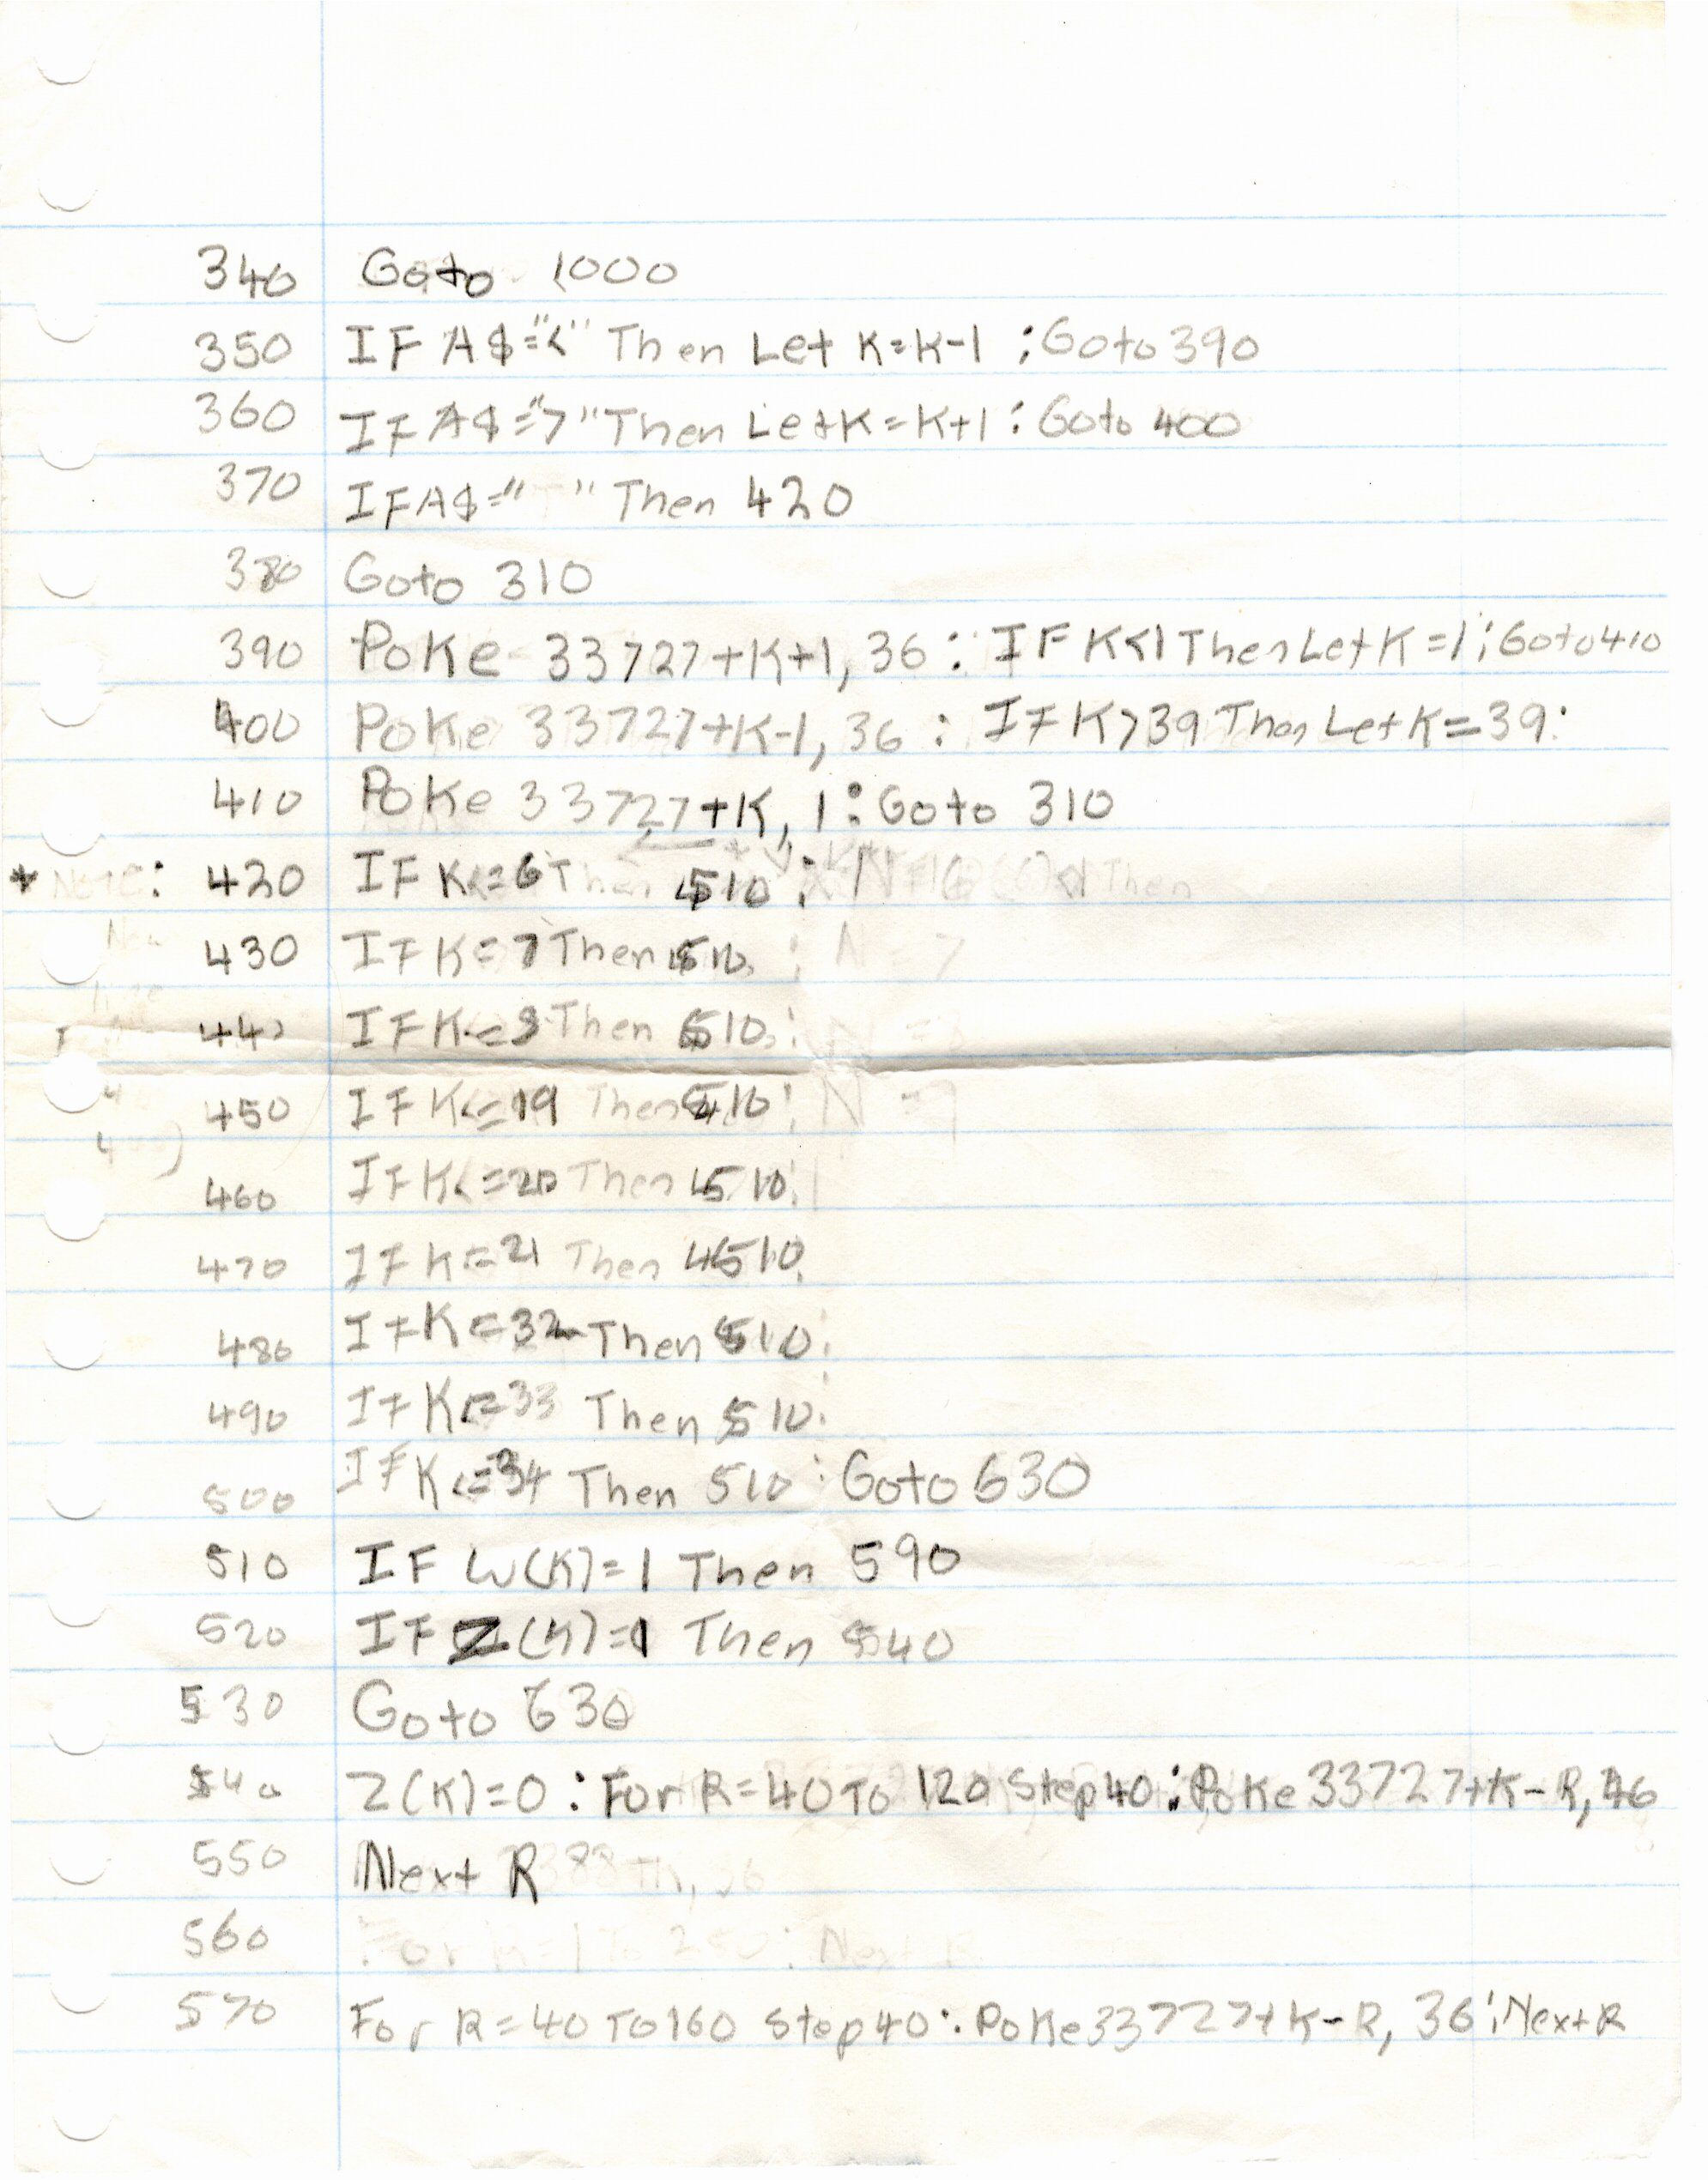 340 Goto 1000
350 IF A$="<" Then Let K=K-1 : Goto 390
360 IF A$=">" Then Let K=K+1 : Goto 400
370 IF A$=" " Then 420
380 Goto 310
390 Poke 33727+K+1, 36 : IF K<1 Then Let K=1 : Goto 410
400 Poke 33727+K-1, 36 : IF K>39 Then Let K=39:
410 Poke 33727+K, 1 : Goto 310
* Note: 420 IF K=6 Then 510 :
430 IF K=7 Then 510
440 IF K=8 Then 510 :
450 IF K=19 Then 510 :
460 IF K=20 Then 510 :
470 IF K=21 Then 510
480 IF K=32 Then 510 :
490 IF K=33 Then 510 :
500 IF K=34 Then 510 : Goto 630
510 IF W(K)=1 Then 590
520 IF Z(K)=1 Then 540
530 Goto 630
540 Z(K)=0 : For R=40 To 120 Step 40 : Poke 33727+K-R, 46
550 Next R
560
570 For R=40 To 160 Step 40 : Poke 33727+K-R, 36 : Next R